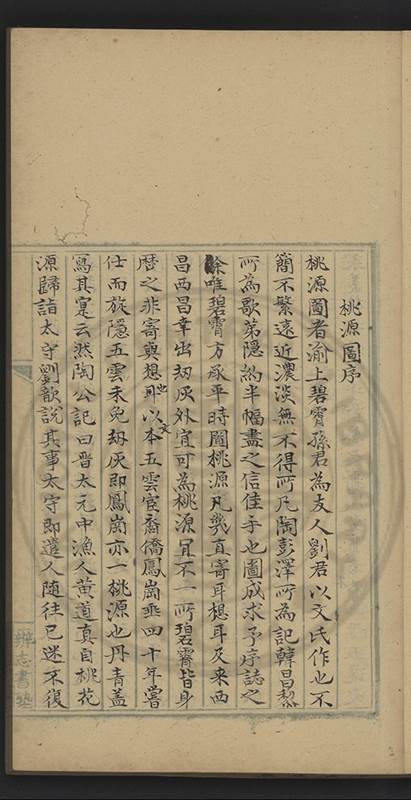 桃源圖序
桃源圖者渝上碧霄孫君為友人劉君以文氏作也不
簡不繁遠近濃淡無不得所凡陶彭澤所為記韓昌黎
所為歌第隱約半幅盡之信佳手也圖成求予序誌之
余唯碧霄方承平時圖桃源凡幾直寄耳想耳及来西
昌西昌幸出刼灰外宜可為桃源冝不一所碧霄皆身
曆之非寄與想耳也以文本五雲宦裔僑鳳崗垂四十年嘗
仕而旋隱五雲未免刼灰即鳳崗亦一桃源也丹青盖
寫其寔云然陶公記曰晋太元中漁人黄道真自桃花
源歸詣太守劉歆說其事太守即遣人随往已迷不復
辨志書塾